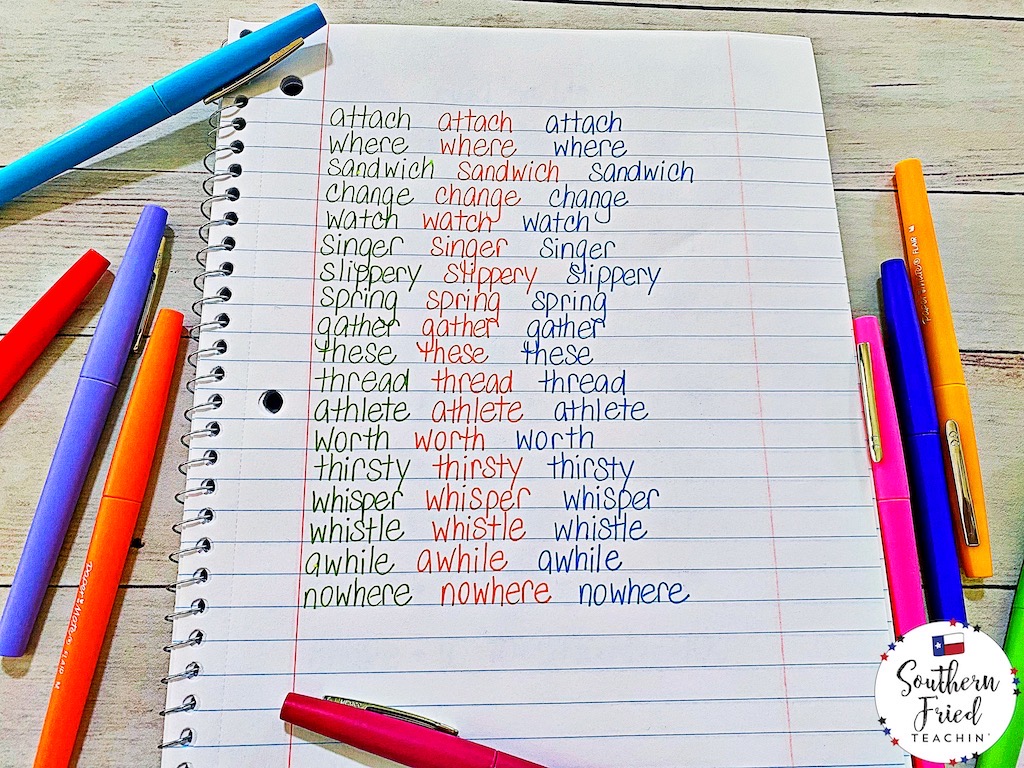 attach attach attach
where where where
sandwich sandwich sandwich
change change change
watch watch watch
singer singer singer
slippery slippery slippery
spring spring spring
gather gather gather
these these these
thread thread thread
athlete athlete athlete
worth worth worth
thirsty thirsty thirsty
whisper whisper whisper
whistle whistle whistle
awhile awhile awhile
nowhere nowhere nowhere
Paper Mate FLAIR M
Paper Mate FLAIR M
Southern
Fried
TEACHIN'